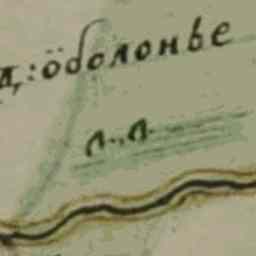 д: оболонье
л..л.